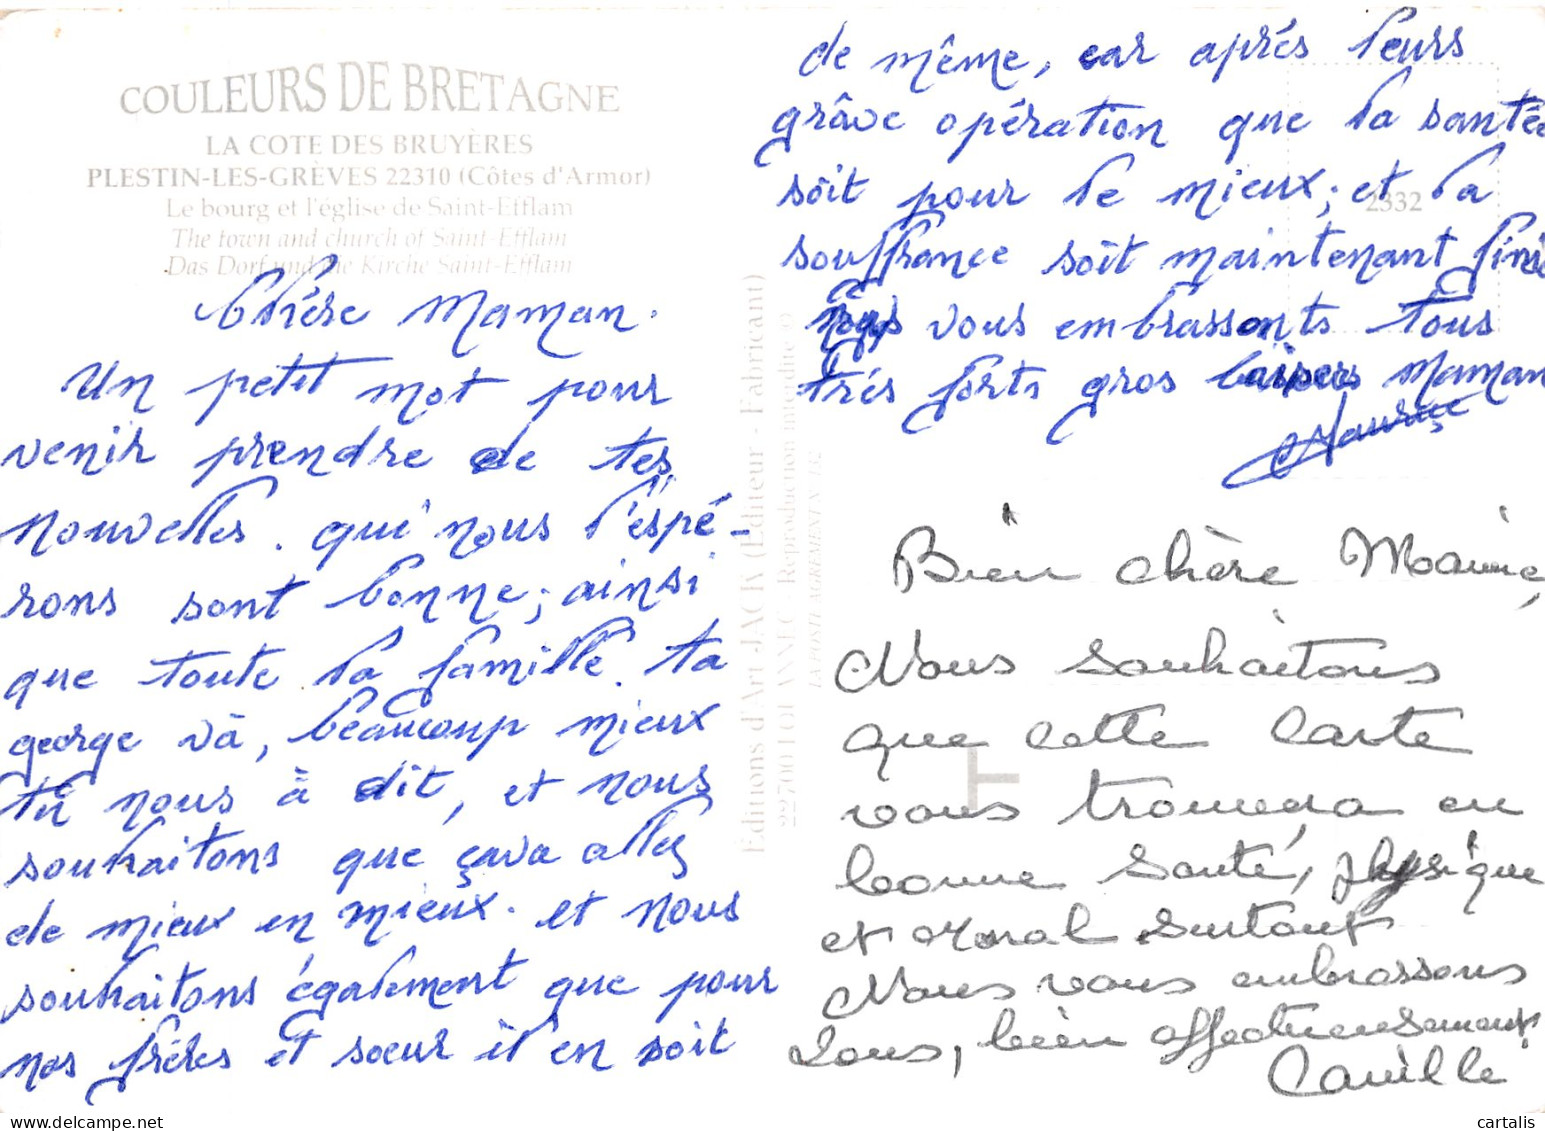 COULEURS DE BRETAGNE
LA COTE DES BRUYÈRES
PLESTIN-LES-GRÈVES 22310 (Côtes d'Armor)
Le bourg et l'église de Saint-Efflam
The town and church of Saint-Efflam
Das Dorf und die Kirche Saint-Efflam
Chère Maman.
Un petit mot pour
venir prendre de tes
nouvelles. qui nous l'espé-
rons sont bonne; ainsi
que toute la famille. ta
george và, beaucoup mieux
tu nous à dit, et nous
souhaitons que çava alley
de mieux en mieux. et nous
souhaitons également que pour
nos fréres et soeur il en soit
de même, car aprés leurs
grâve opération que la santée
soit pour le mieux; et la
souffrance soit maintenant finie
nous vous embrassonts tous
trés forts gros baisers Maman
Maurice
2332
Editions d'Art JACK (Editeur - Fabricant)
22700 LOUANNEC - Reproduction interdite ©
LA POSTE AGREMENT N° 132
Bien chère Mamie,
Nous souhaitons
que cette carte
vous trouvera en
bonne santé, physique
et moral surtout
Nous vous embrassons
tous, bien affectueusement
Camille
cartalis